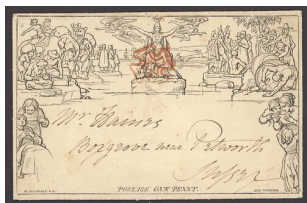 Mr. Haines
Boxgrove near Petworth
Sussex
W. MULREADY R.A.
POSTAGE ONE PENNY.
JOHN THOMPSON